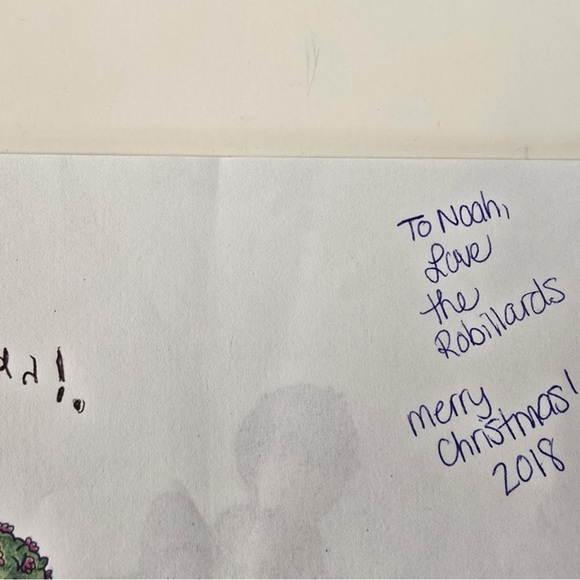 To Noah,
Love
the
Robillards
merry
Christmas!
2018